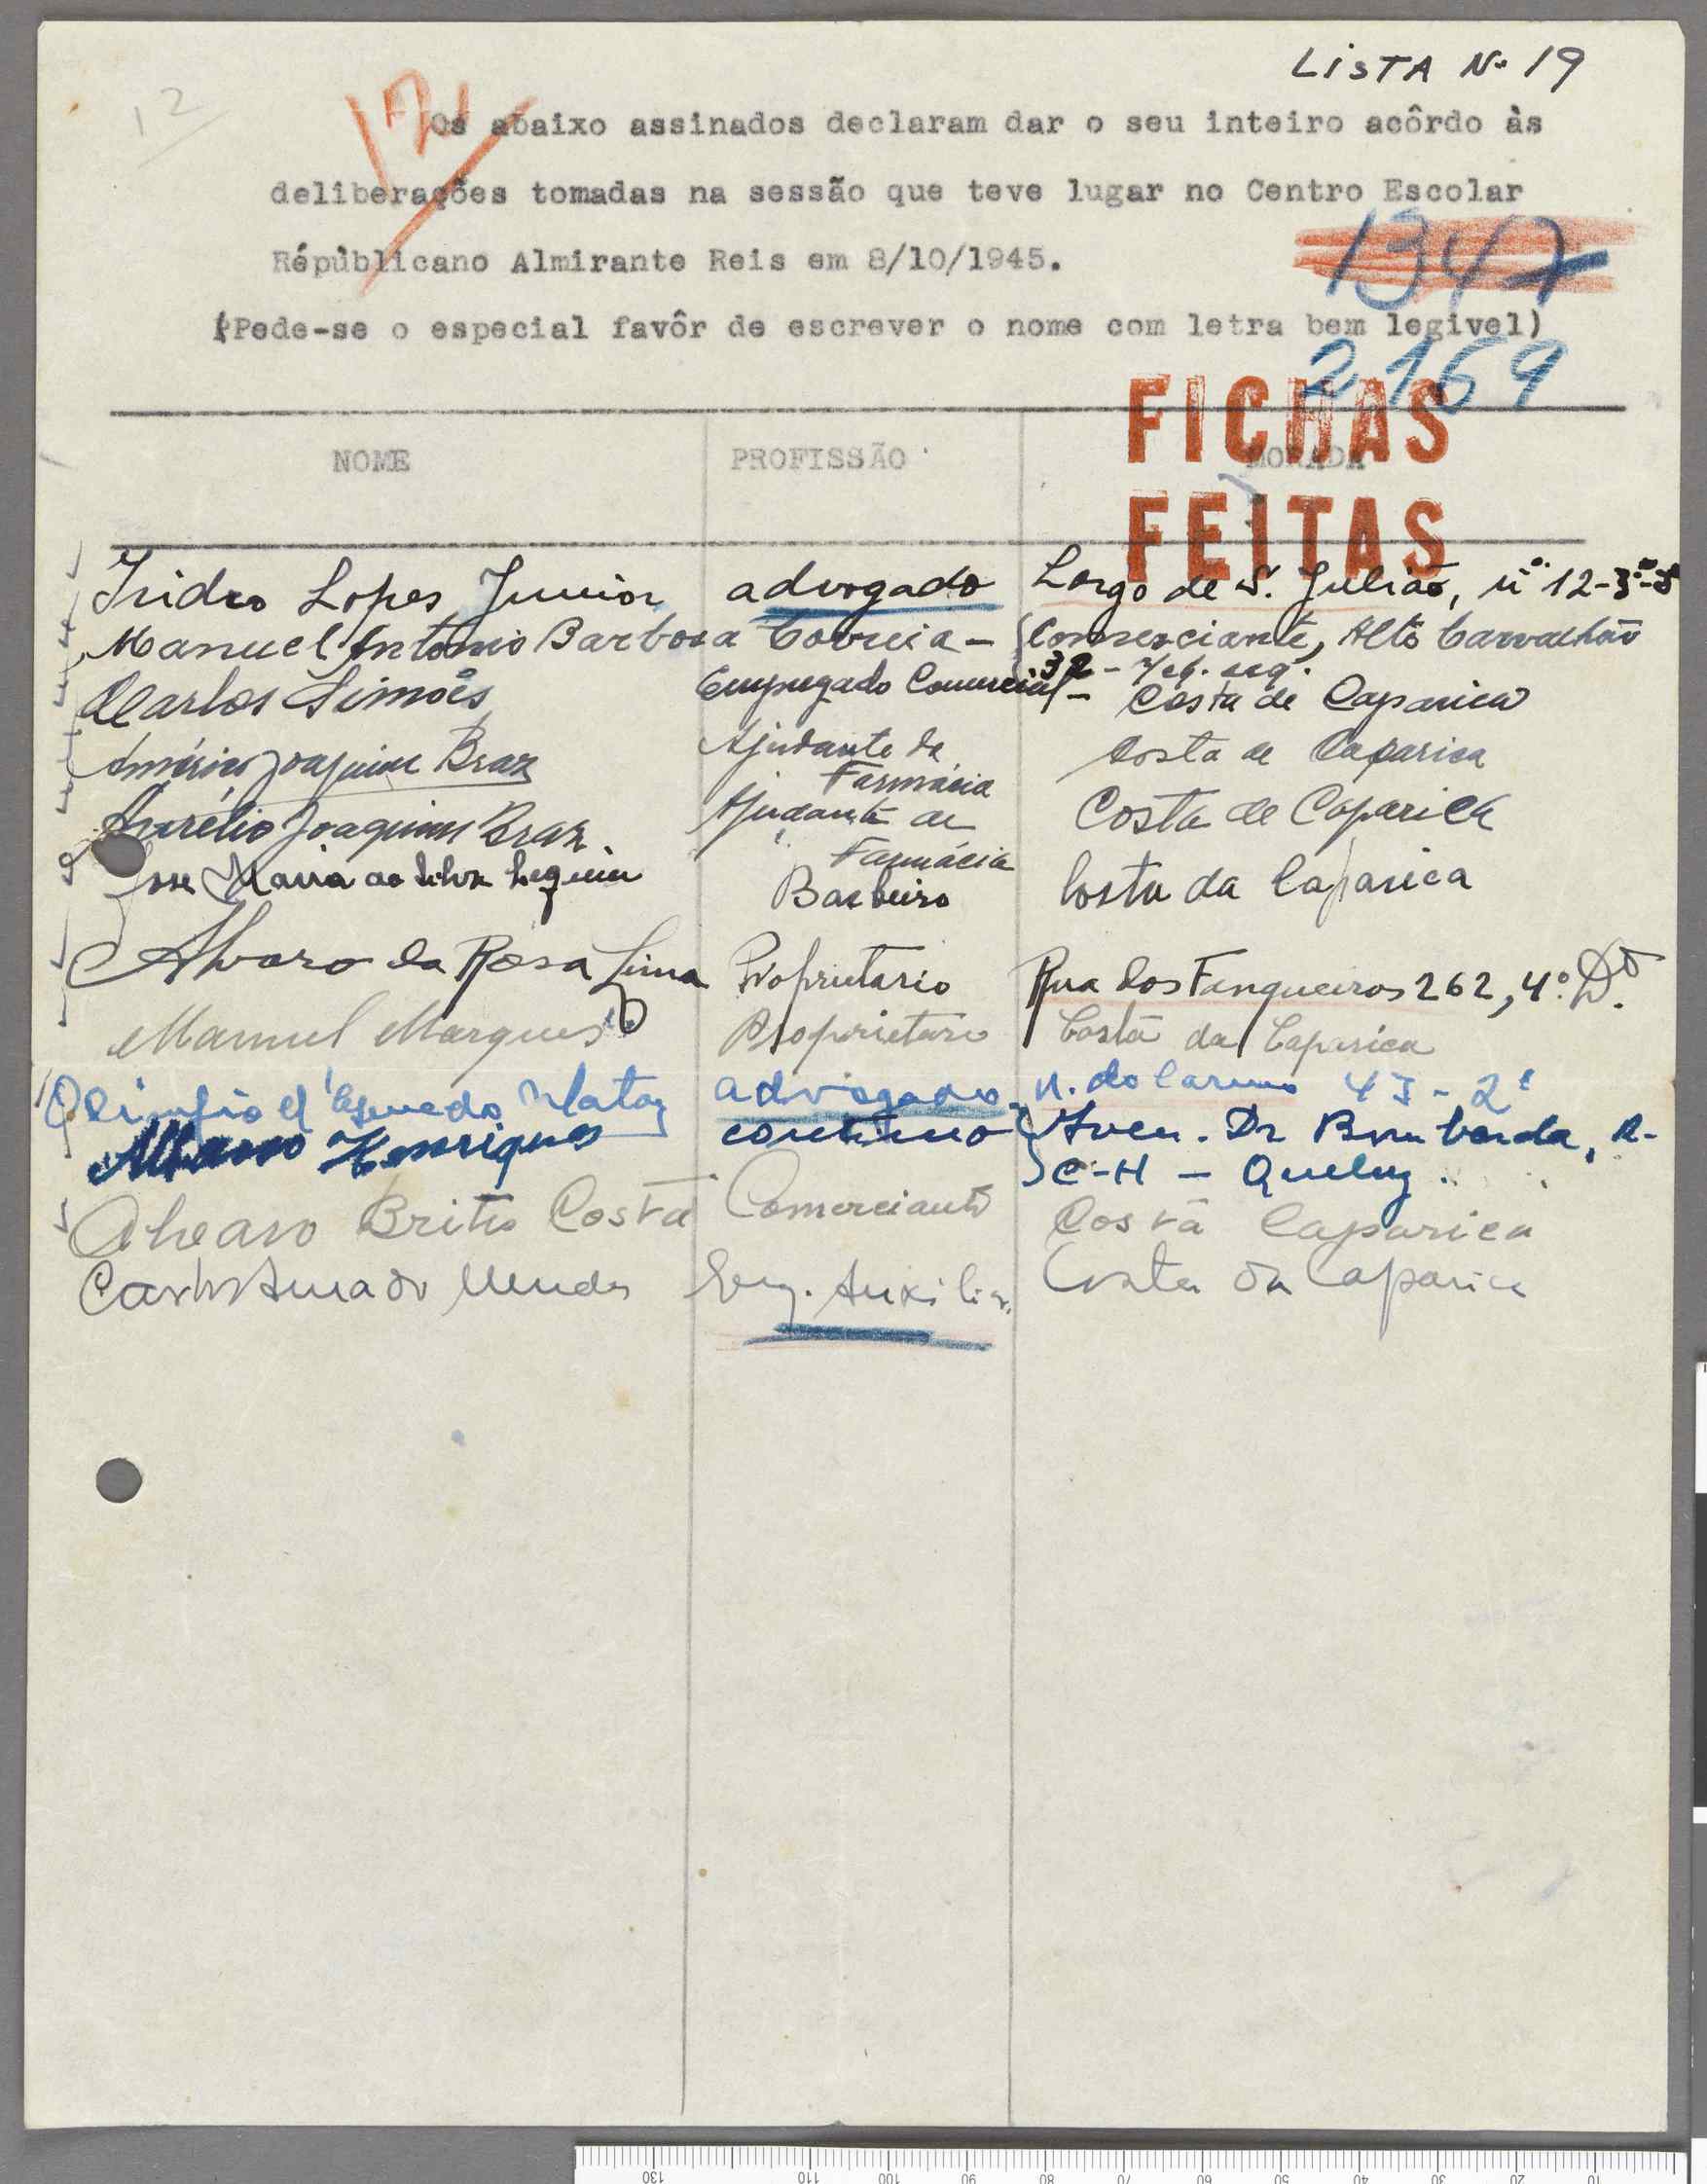 LISTA Nº 19
12
171
Os abaixo assinados declaram dar o seu inteiro acôrdo às
deliberações tomadas na sessão que teve lugar no Centro Escolar
Républicano Almirante Reis em 8/10/1945.
1347
(Pede-se o especial favôr de escrever o nome com letra bem legivel)
2169
FICHAS
NOME PROFISSÃO MORADA
FEITAS
Isidro Lopes Junior advogado Largo de S. Julião, nº 12-3º
Manuel Antonio Barbosa Correia - Comerciante, Alto Carvalhão
32 -
Carlos Simões Empregado Comercial - Costa de Caparica
Américo Joaquim Braz Ajudante de Farmácia Costa de Caparica
Aurélio Joaquim Braz Ajudante de Farmácia Costa de Caparica
José Maria da Silva Barbeiro Costa da Caparica
Alvaro da Rosa Lima Proprietario Rua dos Fanqueiros 262, 4º. Dtº.
Manuel Marques Proprietario Costa da Caparica
Olimpio d'Azevedo Matos advogado R. do Carmo 43 - 2º
Albano Henriques contínuo Aven. Dr Bombarda, R-
C-H - Queluz.
Alvaro Brito Costa Comerciante Costa Caparica
Carlos Amado Mendes Eng. Auxiliar Costa da Caparica
130 110 100 90 80 70 60 50 40 30 20 10